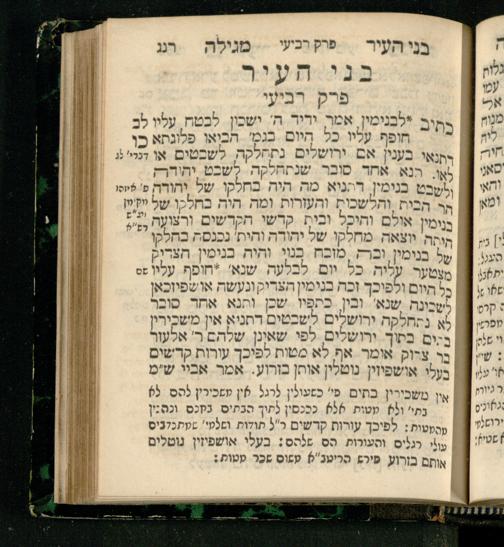 בני העיר פרק רביעי מגילה רנג
בני העיר
פרק רביעי
כתיב *לבנימין אמר ידיד ה' ישכון לבטח עליו לב
חופף עליו כל היום בגמ' הביאו פלוגתא כו
דתנאי בענין אם ירושלים נתחלקה לשבטים או דברי' לג
לאו. תנא אחד סובר שנתחלקה לשבט יהודה
ולשבט בנימין דתניא מה היה בחלקו של יהודה
הר הבית והלשכות והעזרות ומה היה בחלקו של
בנימין אולם והיכל ובית קדשי הקדשים ורצועה
היתה יוצאה מחלקו של יהודה והית' נכנסת בחלקו
של בנימין ובה מזבח בנוי והיה בנימין הצדיק
מצטער עליה כל יום לבלעה שנא' *חופף עליו שם
כל היום ולפיכך זכה בנימין הצדיק ונעשה אושפיזכאן
לשכינה שנא' ובין כתפיו שכן ותנא אחד סובר
לא נתחלקה ירושלים לשבטים דתניא אין משכירין
בתים בתוך ירושלים לפי שאינן שלהם ר' אלעזר
בר צדוק אומר אף לא מטות לפיכך עורות קדשים
בעלי אושפיזין נוטלין אותן בזרוע. אמר אביי ש"מ
אין משכירין בתים פי' כשעולין לרגל אין משכירין להם לא
בתי' ולא מטות אלא נכנסין לתוך הבתים בחנם ונהנין
מהמטות: לפיכך עורות קדשים ר"ל תודות ושלמי' שמקריבים
עולי רגלים והעורות הם שלהם: בעלי אושפיזין נוטלים
אותם בזרוע פירש הריטב"א משום שכר מטות: